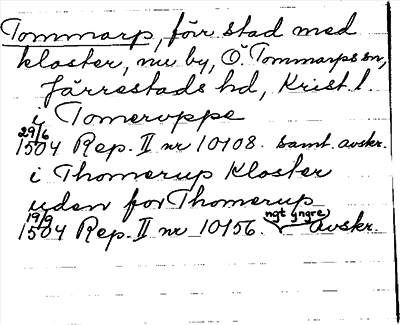 Tommarp, förr stad med
kloster, nu by, Ö. Tommarps sn,
Järrestads hd, Krist. l.
i Tomeroppe
29/6 1504 Rep. II nr 10108. samt. avskr.
i Thomerup Kloster
uden for Thomerup
19/9 1504 Rep. II nr 10156. ngt yngre avskr.